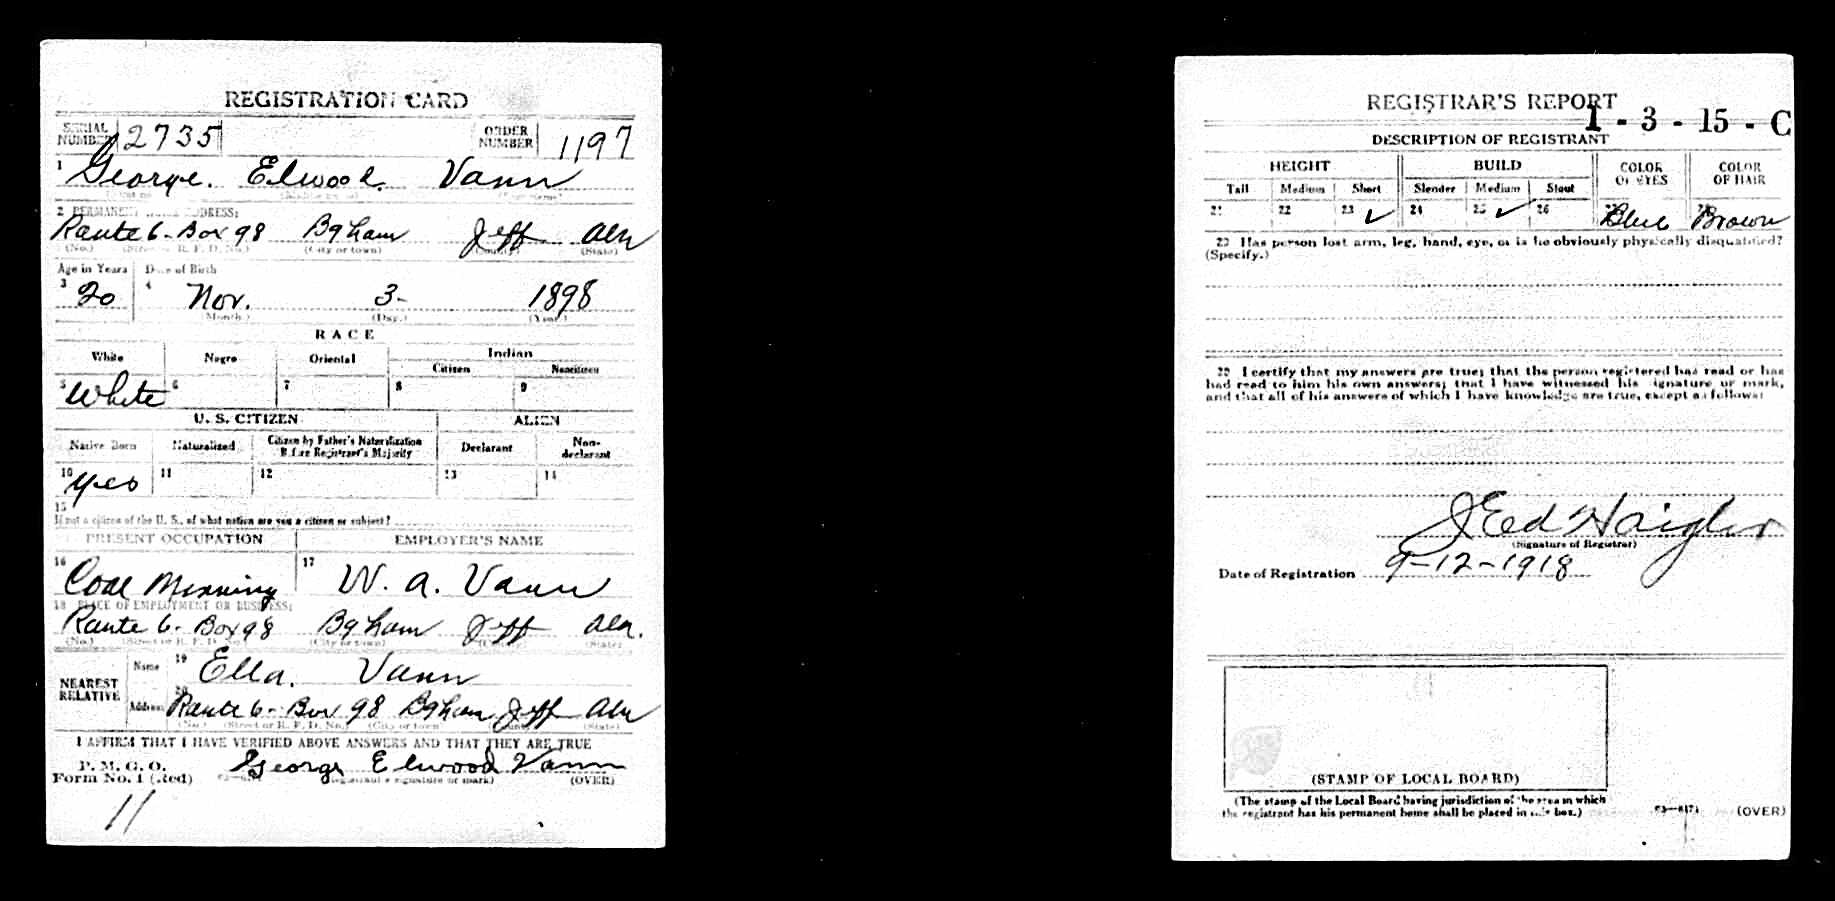 REGISTRATION CARD
SERIAL NUMBER 2735 ORDER NUMBER 1197
1 George. Elwood. Vann
2 PERMANENT HOME ADDRESS:
Route 6 - Box 98 Bgham Jeff Ala
(No.) (Street or R. F. D. No.) (City or town) (County) (State)
Age in Years Date of Birth
3 20 4 Nov. 3- 1898
(Month.) (Day.) (Year.)
RACE
White Negro Oriental Indian
Citizen Noncitizen
5 White 6 7 8 9
U. S. CITIZEN ALIEN
Native Born Naturalized Citizen by Father's Naturalization Before Registrant's Majority Declarant Non-declarant
10 yes 11 12 13 14
15
If not a citizen of the U. S., of what nation are you a citizen or subject?
PRESENT OCCUPATION EMPLOYER'S NAME
16 Coal Minning 17 W. A. Vann
18 PLACE OF EMPLOYMENT OR BUSINESS:
Route 6 - Box 98 Bgham Jeff Ala.
(No.) (Street or R. F. D. No.) (City or town) (County) (State)
NEAREST RELATIVE Name 19 Ella. Vann
Address 20 Route 6 - Box 98 Bgham Jeff Ala
(No.) (Street or R. F. D. No.) (City or town) (County) (State)
I AFFIRM THAT I HAVE VERIFIED ABOVE ANSWERS AND THAT THEY ARE TRUE
P. M. G. O.
Form No. 1 (Red) George Elwood Vann
(Registrant's signature or mark) (OVER)
11
REGISTRAR'S REPORT
1 - 3 - 15 - C
DESCRIPTION OF REGISTRANT
HEIGHT BUILD COLOR OF EYES COLOR OF HAIR
Tall Medium Short Slender Medium Stout
21 22 23 ✓ 24 25 ✓ 26 27 Blue 28 Brown
29 Has person lost arm, leg, hand, eye, or is he obviously physically disqualified?
(Specify.)
30 I certify that my answers are true; that the person registered has read or has
had read to him his own answers; that I have witnessed his signature or mark,
and that all of his answers of which I have knowledge are true, except as follows:
J Ed Haigler
(Signature of Registrar)
Date of Registration 9-12-1918
(STAMP OF LOCAL BOARD)
(The stamp of the Local Board having jurisdiction of the area in which
the registrant has his permanent home shall be placed in this box.)
(OVER)